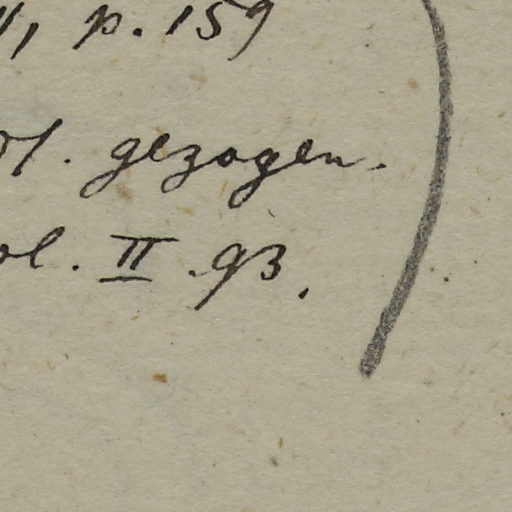 p. 159
gezogen.
ol. II. 93.